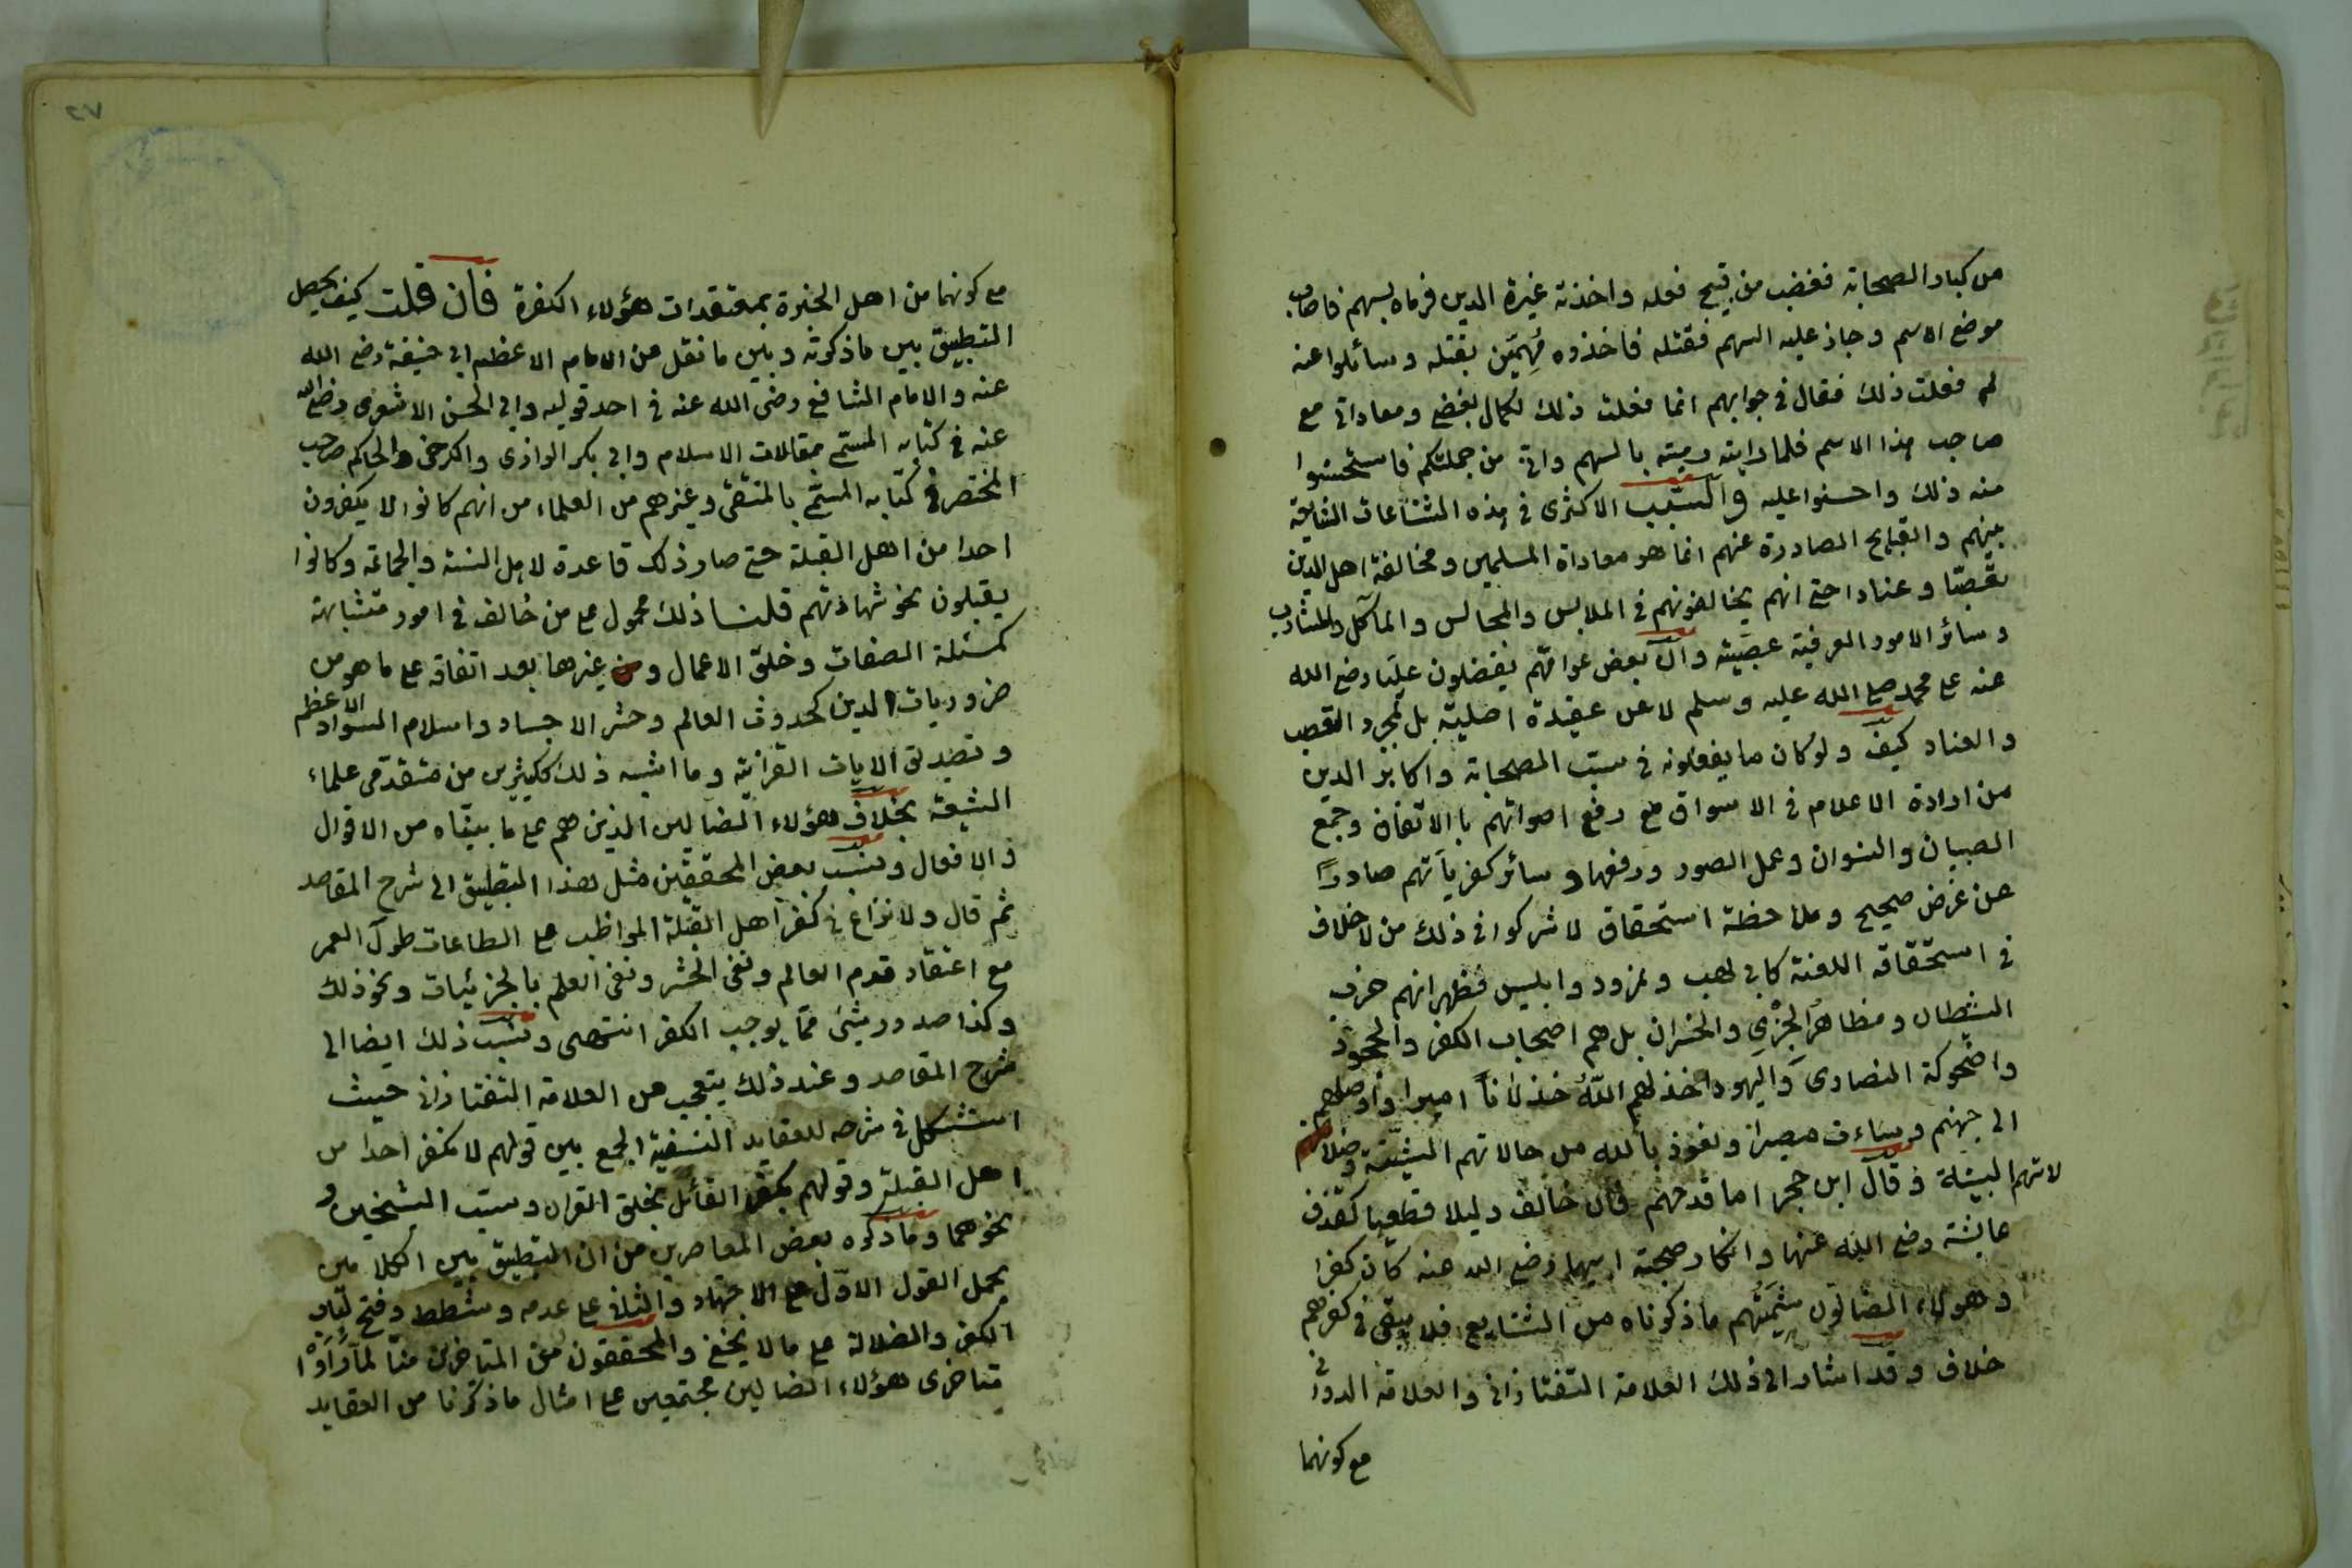 من كبار الصحابة فغضب من قبيح فعله واخذته غيرة الدين فرماه بسهم فاصاب
موضع الاسم وجاز عليه السهم فقتله فاخذوه بقتله وسائلوا عنه
لم فعلت ذلك فقال في جوابهم انما فعلت ذلك لكمال بغضي ومعاداتي مع
صاحب هذا الاسم فلما رايته رميته بالسهم واني من جملتكم فاستحسنوا
منه ذلك واحسنوا عليه والسبب الاكثرى في هذه الشناعات الشايعة
بينهم والقبايح الصادرة عنهم انما هو معاداة المسلمين ومخالفة اهل الدين
تعصبا وعنادا حتى انهم يخالفونهم في الملابس والمجالس والمآكل والمشارب
وسائر الامور العرفية عصبية وان بعض عوامهم يفضلون عليا رضي الله
عنه على محمد صلى الله عليه وسلم لا عن عقيدة اصلية بل لمجرد التعصب
والعناد كيف ولو كان ما يفعلونه في سب الصحابة واكابر الدين
من ارادة الاعلام في الاسواق مع رفع اصواتهم بالاتفاق وجمع
الصبيان والنسوان وعمل الصور ورفعها وسائر كفرياتهم صادرًا
عن غرض صحيح وملاحظة استحقاق لاشركوا في ذلك من لا خلاف
في استحقاقه اللعنة كابي لهب ونمرود وابليس فظهر انهم حزب
الشيطان ومظاهر الخزي والخسران بل هم اصحاب الكفر والجحود
واضحوكة النصارى واليهود اخذلهم الله خذلاناً واوصلهم
الى جهنم وساءت مصيرا ونعوذ بالله من حالاتهم الشنيعة وضلا
لاتهم قال ابن حجر اما قدحهم فان خالف دليلا قطعيا كقذف
عايشة رضي الله عنها وانكار صحبة ابيها رضي الله عنه كان كفرا
وهؤلاء الضالون شيمتهم ما ذكرناه من الشنايع فلا يبقى في كفرهم
خلاف وقد اشار الى ذلك العلامة التفتازاني والعلامة الدواني
مع كونهما
٢٧
مع كونهما من اهل الخبرة بمعتقدات هؤلاء الكفرة فان قلت كيف يحصل
التطبيق بين ما ذكرته وبين ما نقل عن الامام الاعظم ابي حنيفة رضي الله
عنه والامام الشافعي رضي الله عنه في احد قوليه وابي الحسن الاشعرى رضي الله
عنه في كتابه المسمى بمقالات الاسلام وابي بكر الرازى والكرخى والحاكم صاحب
المختصر في كتابه المسمى بالمنتقى وغيرهم من العلماء من انهم كانوا لا يكفرون
احدا من اهل القبلة حتى صار ذلك قاعدة لاهل السنة والجماعة وكانوا
يقبلون نحو شهادتهم قلنا ذلك محمول على من خالف في امور متشابهة
كمسئلة الصفات وخلق الاعمال وغيرها بعد اتفاقه على ما هو من
ضروريات الدين كحدوث العالم وحشر الاجساد واسلام السواد الاعظم
وتصديق الايات القرانية وما اشبه ذلك ككثيرين من متقدمى علماء
الشيعة بخلاف هؤلاء الضالين الذين هم على ما بيناه من الاقوال
والافعال ونسب بعض المحققين مثل هذا التطبيق الى شرح المقاصد
ثم قال ولا نزاع في كفر اهل القبلة المواظب على الطاعات طول العمر
مع اعتقاد قدم العالم ونفى الحشر ونفى العلم بالجزئيات ونحو ذلك
وكذا صدور شئ مما يوجب الكفر انتهى ونسب ذلك ايضا الى
شرح المقاصد وعند ذلك يتعجب من العلامة التفتازاني حيث
استشكل في شرحه للعقايد النسفية الجمع بين قولهم لا نكفر احدا من
اهل القبلة وقولهم بكفر القائل بخلق القران وسب الشيخين و
نحوهما وما ذكره بعض المعاصرين من ان التطبيق بين الكلامين
بحمل القول الاول على الاجتهاد والثاني على عدمه وشطط وفتح لباب
الكفر والضلالة على ما لا يخفى والمحققون من المتاخرين منا لما رأوا
متاخرى هؤلاء الضالين مجتمعين على امثال ما ذكرنا من العقايد